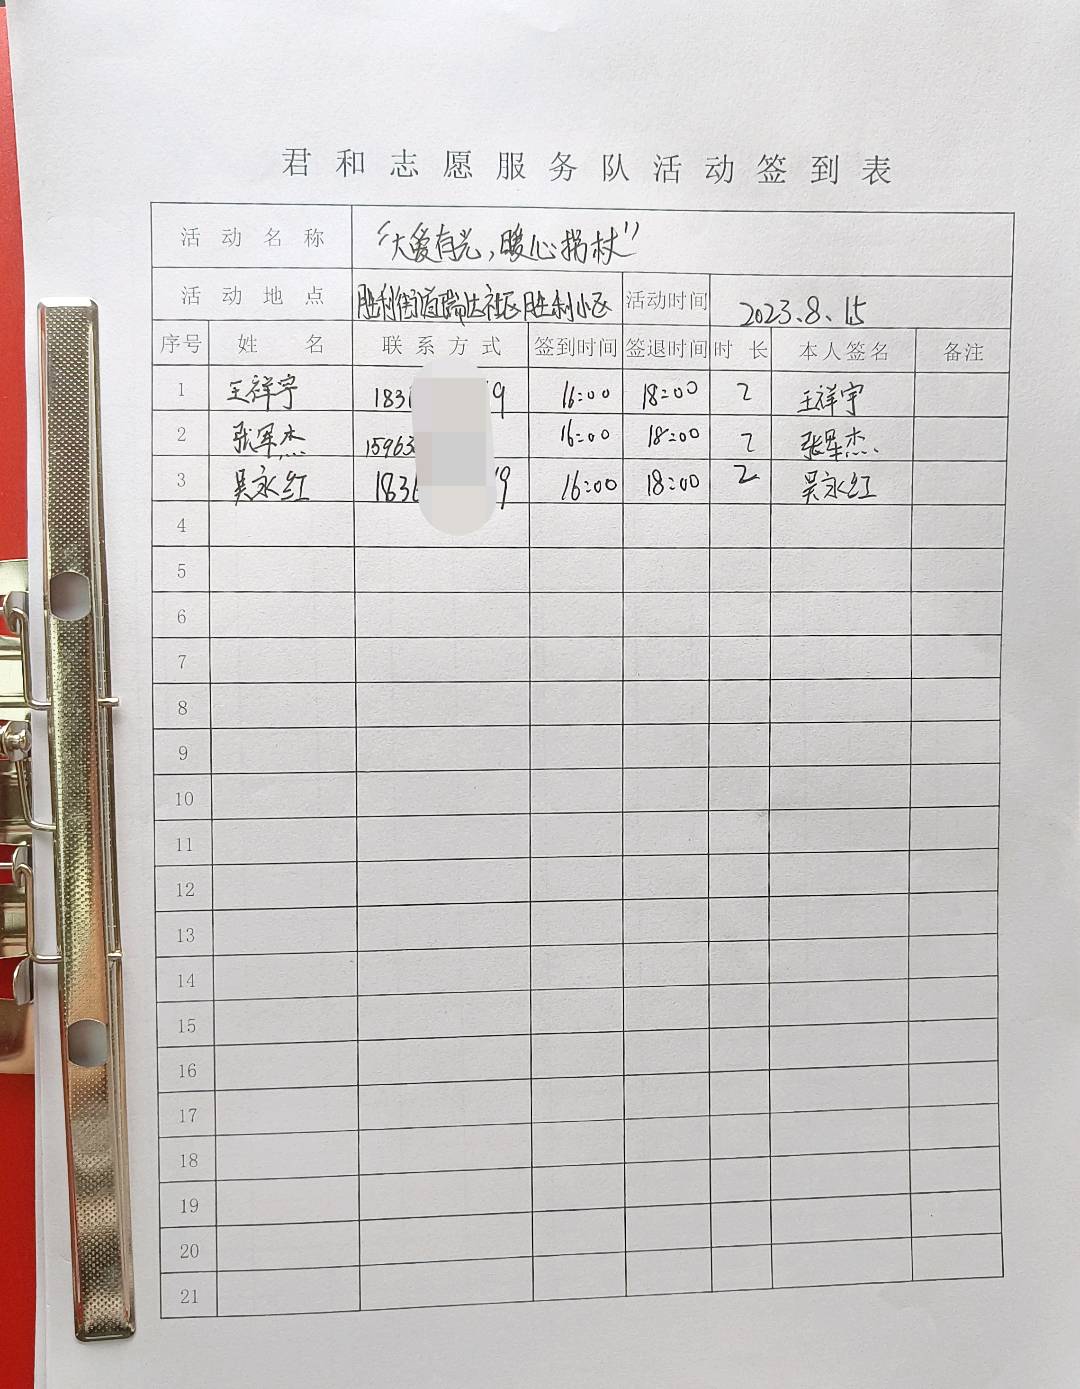 君和志愿服务队活动签到表
活动名称 “大爱有光，暖心拐杖”
活动地点 胜利街道瑞达社区胜利小区 活动时间 2023.8.15
序号 姓名 联系方式 签到时间 签退时间 时长 本人签名 备注
1 王祥宇 183 9 16:00 18:00 2 王祥宇
2 张军杰 15963 16:00 18:00 2 张军杰
3 吴永红 183 9 16:00 18:00 2 吴永红
4
5
6
7
8
9
10
11
12
13
14
15
16
17
18
19
20
21